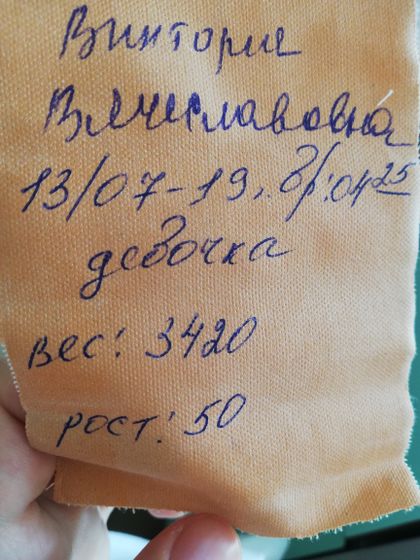 Виктория
Вячеславовна
13/07-19, вр: 04 25
девочка
вес: 3420
рост: 50